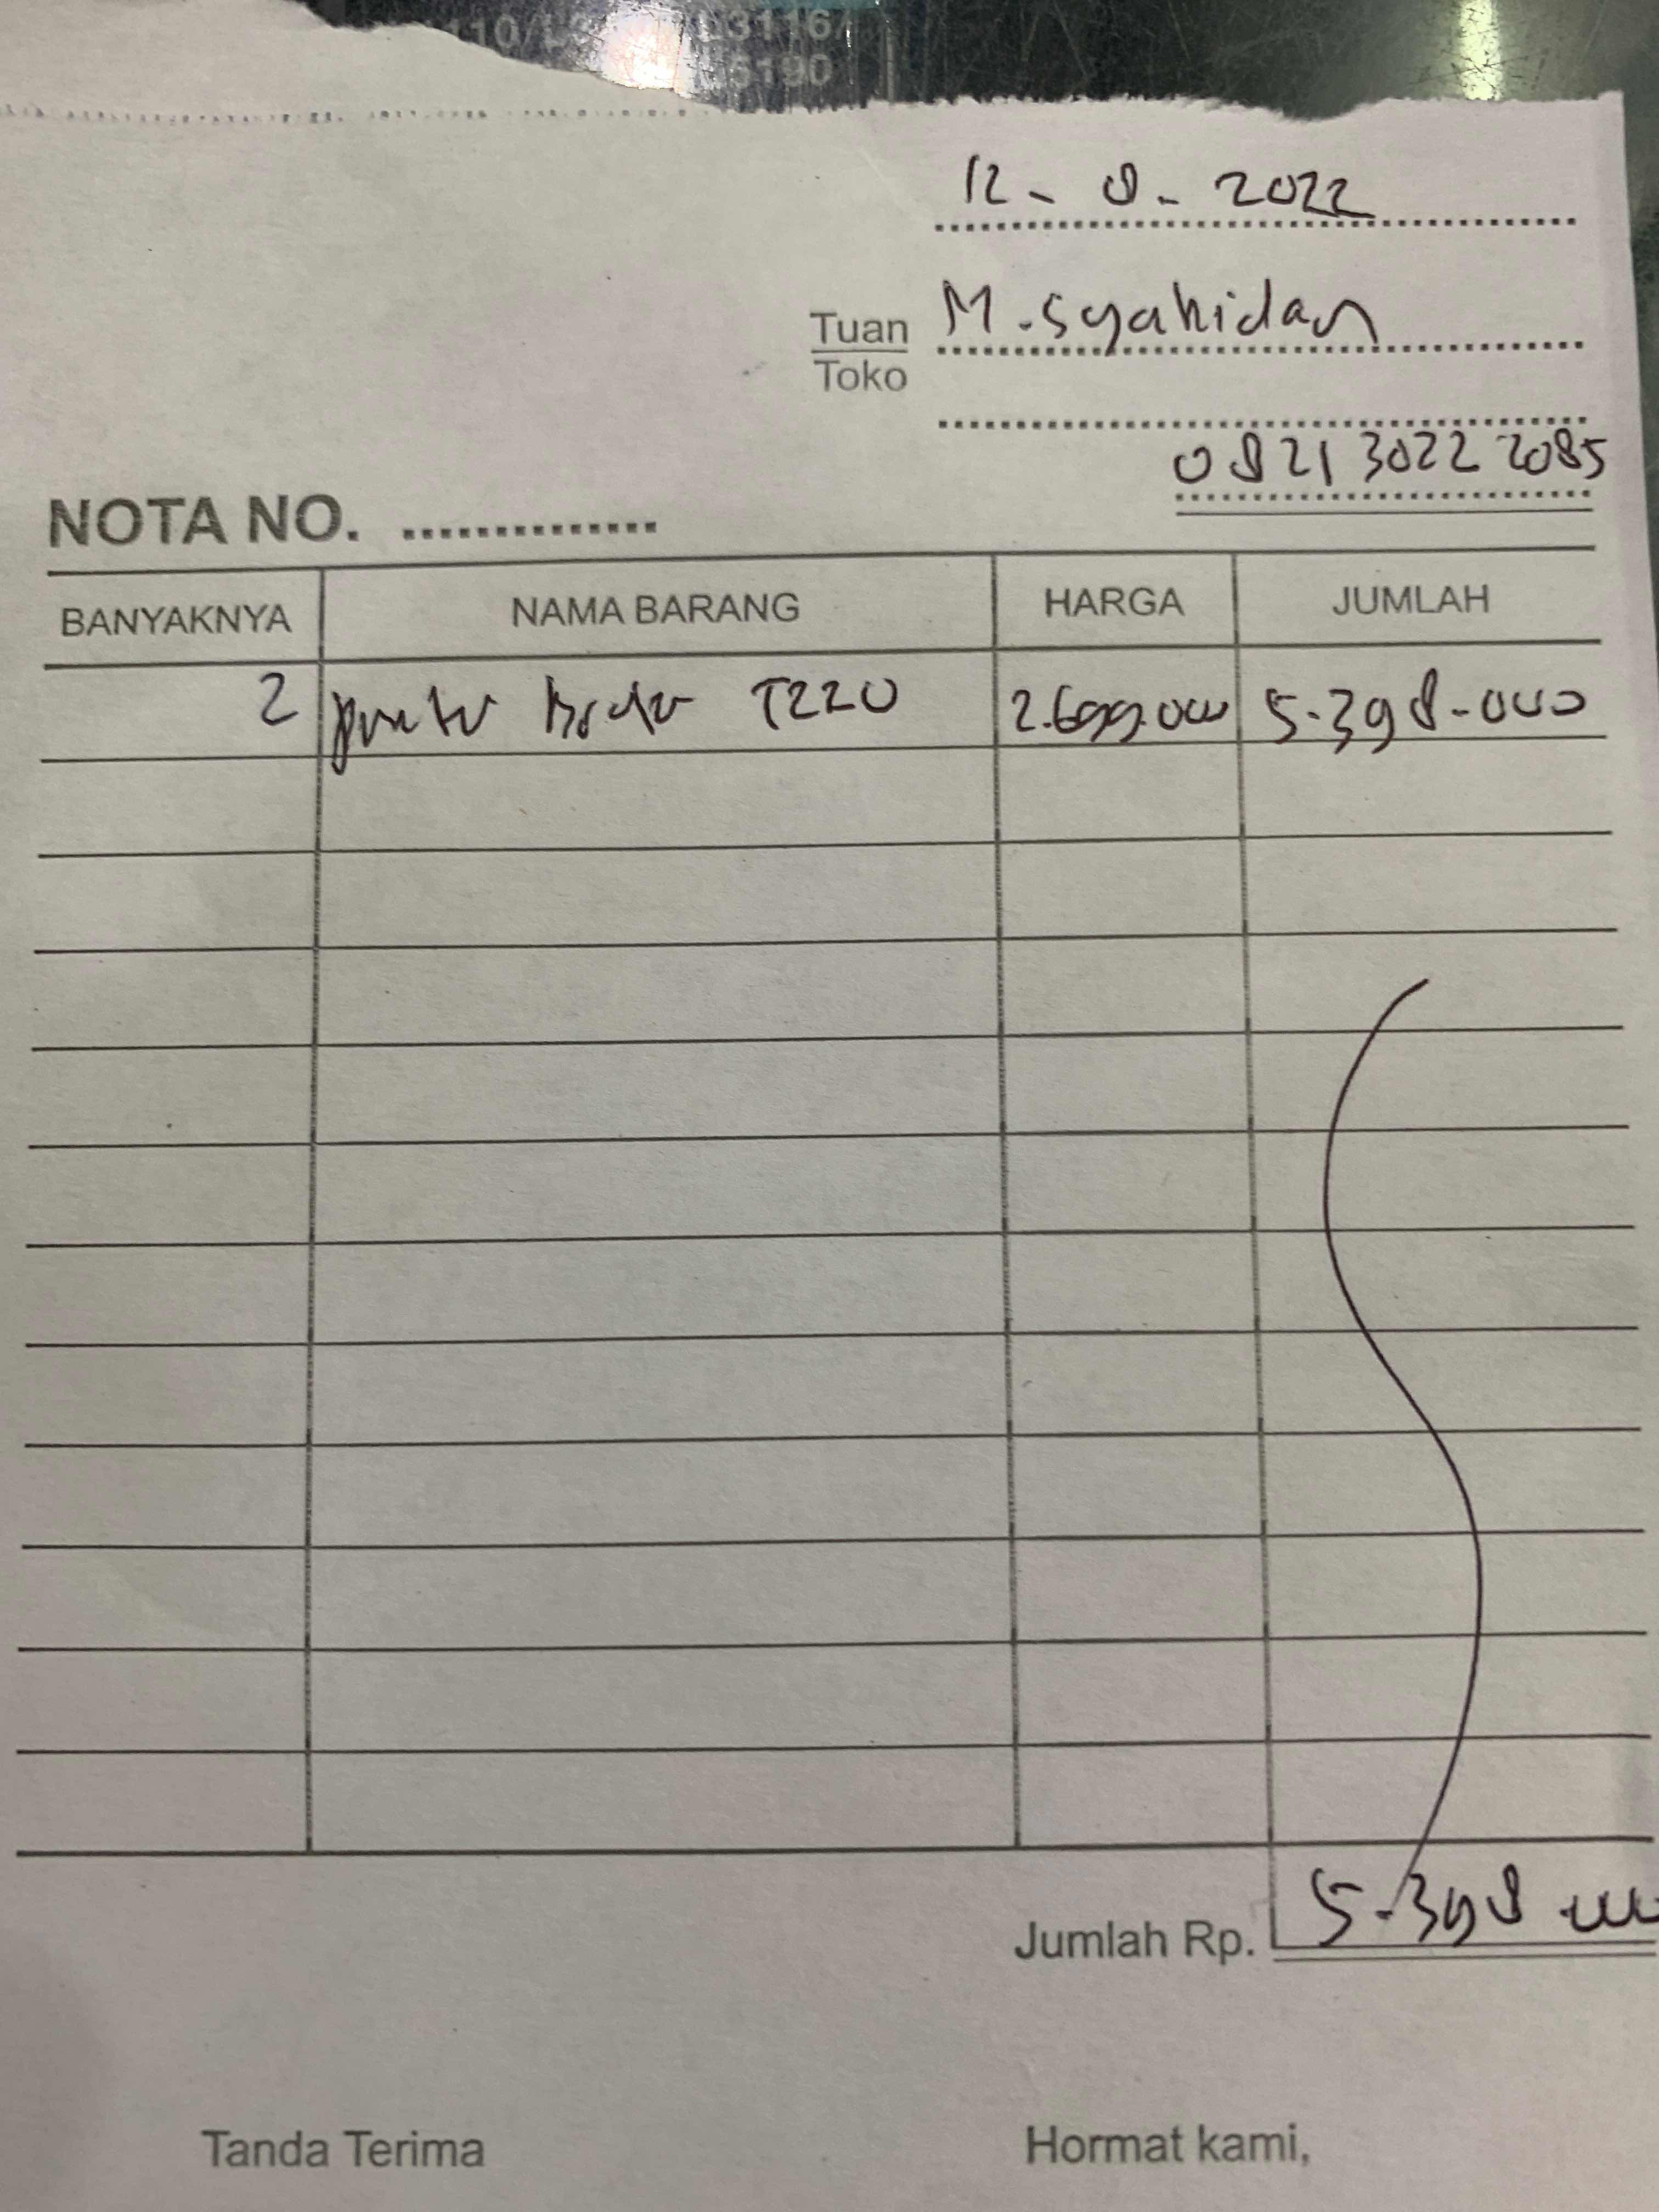 12 - 8 - 2022
Tuan M. Syahidan
Toko
0821 3022 2085
NOTA NO.
BANYAKNYA NAMA BARANG HARGA JUMLAH
2 T220 2.699.000 5.398.000
Jumlah Rp. 5.398.000
Tanda Terima Hormat kami,